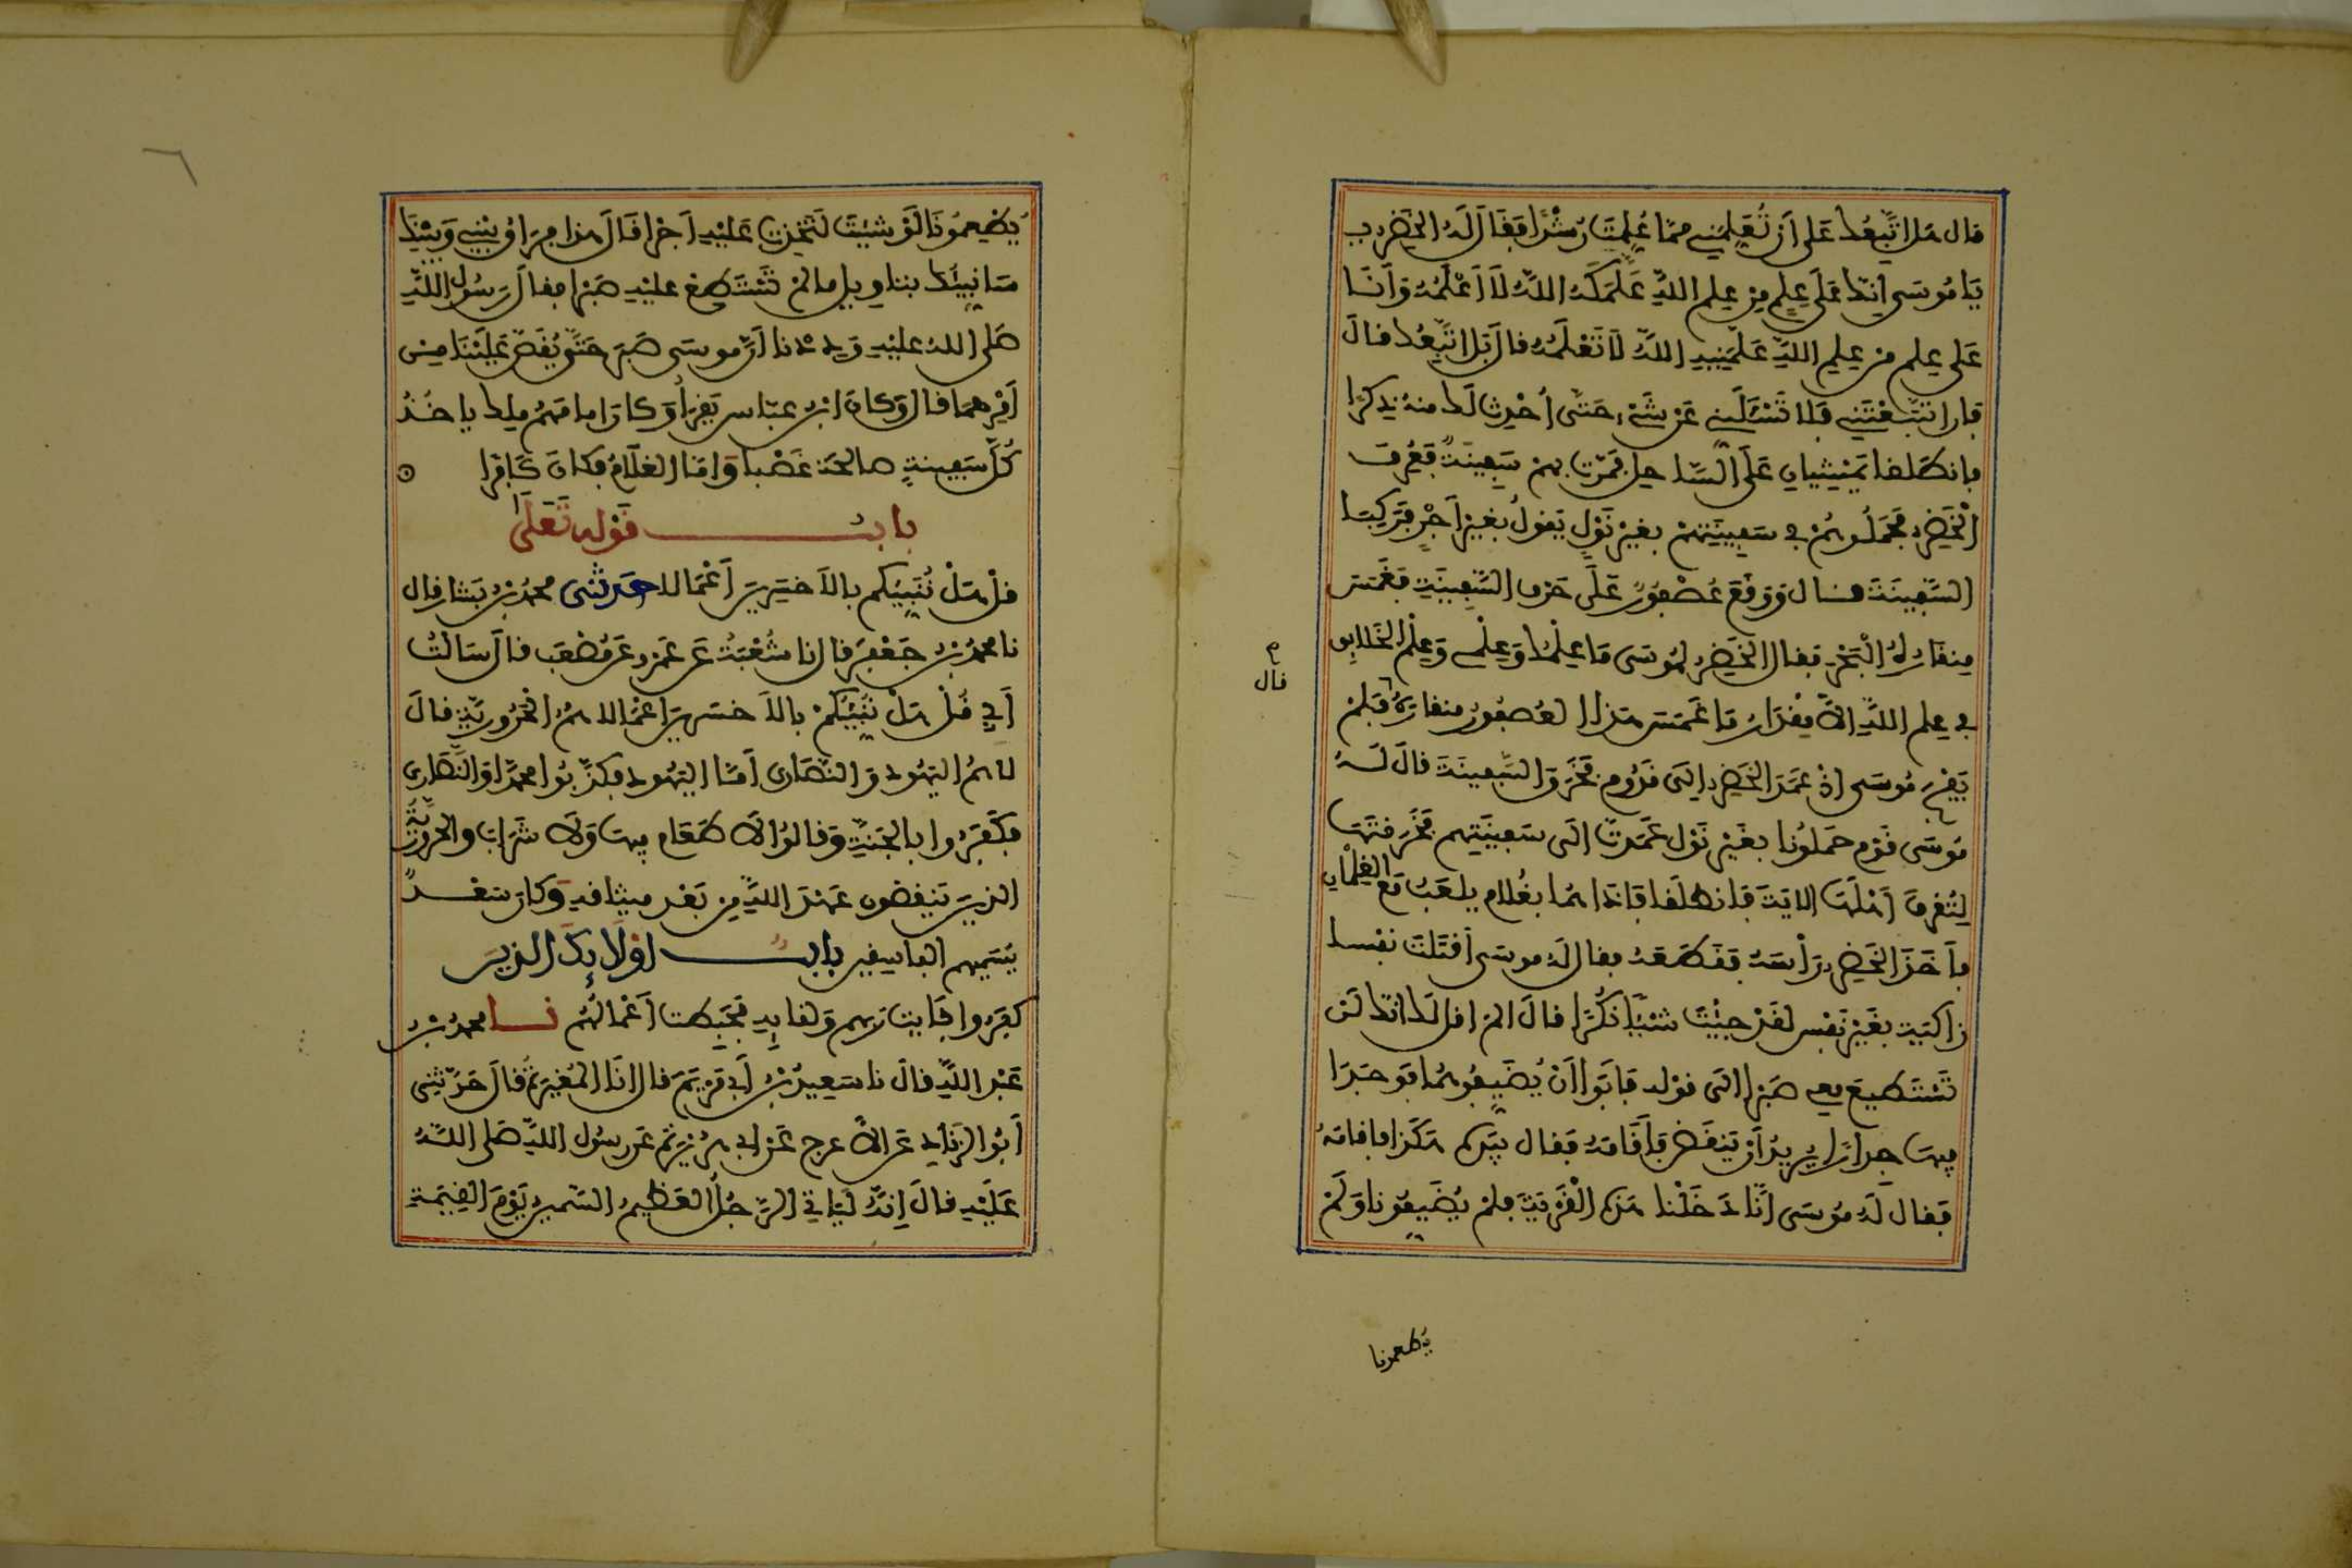 قال هل اتبعك على ان تُعلمني مما عُلمت رشدا فقال له الخضر
يا موسى انك على علم من علم الله علمكه الله لا اعلمه وانا
على علم من علم الله علمنيه الله لا تعلمه قال بل اتبعك قال
فإن اتبعتني فلا تسئلني عن شيء حتى أحدث لك منه ذكرا
فانطلقا يمشيان على الساحل فمرت بهم سفينة فعرف
الخضر فحملوهم في سفينتهم بغير نول يقول بغير أجر فركبا
السفينة قال ووقع عصفور على حرف السفينة فغمس
منقاره البحر فقال الخضر لموسى ما علمك وعلمي وعلم الخلايق
في علم الله الا مقدار ما غمس هذا العصفور منقاره فلم
يفجأ موسى اذ عمد الخضر الى قدوم فخرق السفينة قال له
موسى قوم حملونا بغير نول عمدت الى سفينتهم فخرقتها
لتغرق أهلها الاية فانطلقا فاذا هما بغلام يلعب مع الغلمان
فأخذ الخضر برأسه فقطعه فقال له موسى أقتلت نفسا
زاكية بغير نفس لقد جئت شيئا نكرا قال الم اقل لك انك لن
تستطيع معي صبرا الى قوله فابوا أن يضيفوهما فوجدا
فيها جدارا يريد أن ينقض فأقامه فقال بيده هكذا فاقامه
فقال له موسى إنا دخلنا هذه القرية فلم يضيفونا ولم
قال
يطعمونا
يطعمونا لو شئت لتخذت عليه أجرا قال هذا فراق بيني وبينك
سانبئك بتاويل ما لم تستطع عليه صبرا فقال رسول الله
صلى الله عليه وددنا أن موسى صبر حتى يقص علينا من
أمرهما قال وكان ابن عباس يقرأ وكان امامهم ملك ياخذ
كل سفينة صالحة غصبا واما الغلام فكان كافرا
باب قوله تعلى
قل هل ننبيكم بالاخسرين أعمالا حدثني محمد بن بشار قال
نا محمد بن جعفر قال نا شعبة عن عمرو عن مصعب قال سالت
أبي قل هل ننبيكم بالاخسرين اعمالا هم الحرورية قال
لا هم اليهود والنصارى أما اليهود فكذبوا محمدا والنصارى
فكفروا بالجنة وقالوا لا طعام فيها ولا شراب والحرورية
الذين ينقضون عهد الله من بعد ميثاقه وكان سعد
يسميهم الفاسقين باب اولايك الذين
كفروا بايات ربهم ولقايه فحبطت أعمالهم نا محمد بن
عبد الله قال نا سعيد بن أبي مريم قال انا المغيرة قال حدثني
أبو الزناد عن الاعرج عن ابي هريرة عن رسول الله صلى الله
عليه قال إنه لياتي الرجل العظيم السمين يوم القيمة